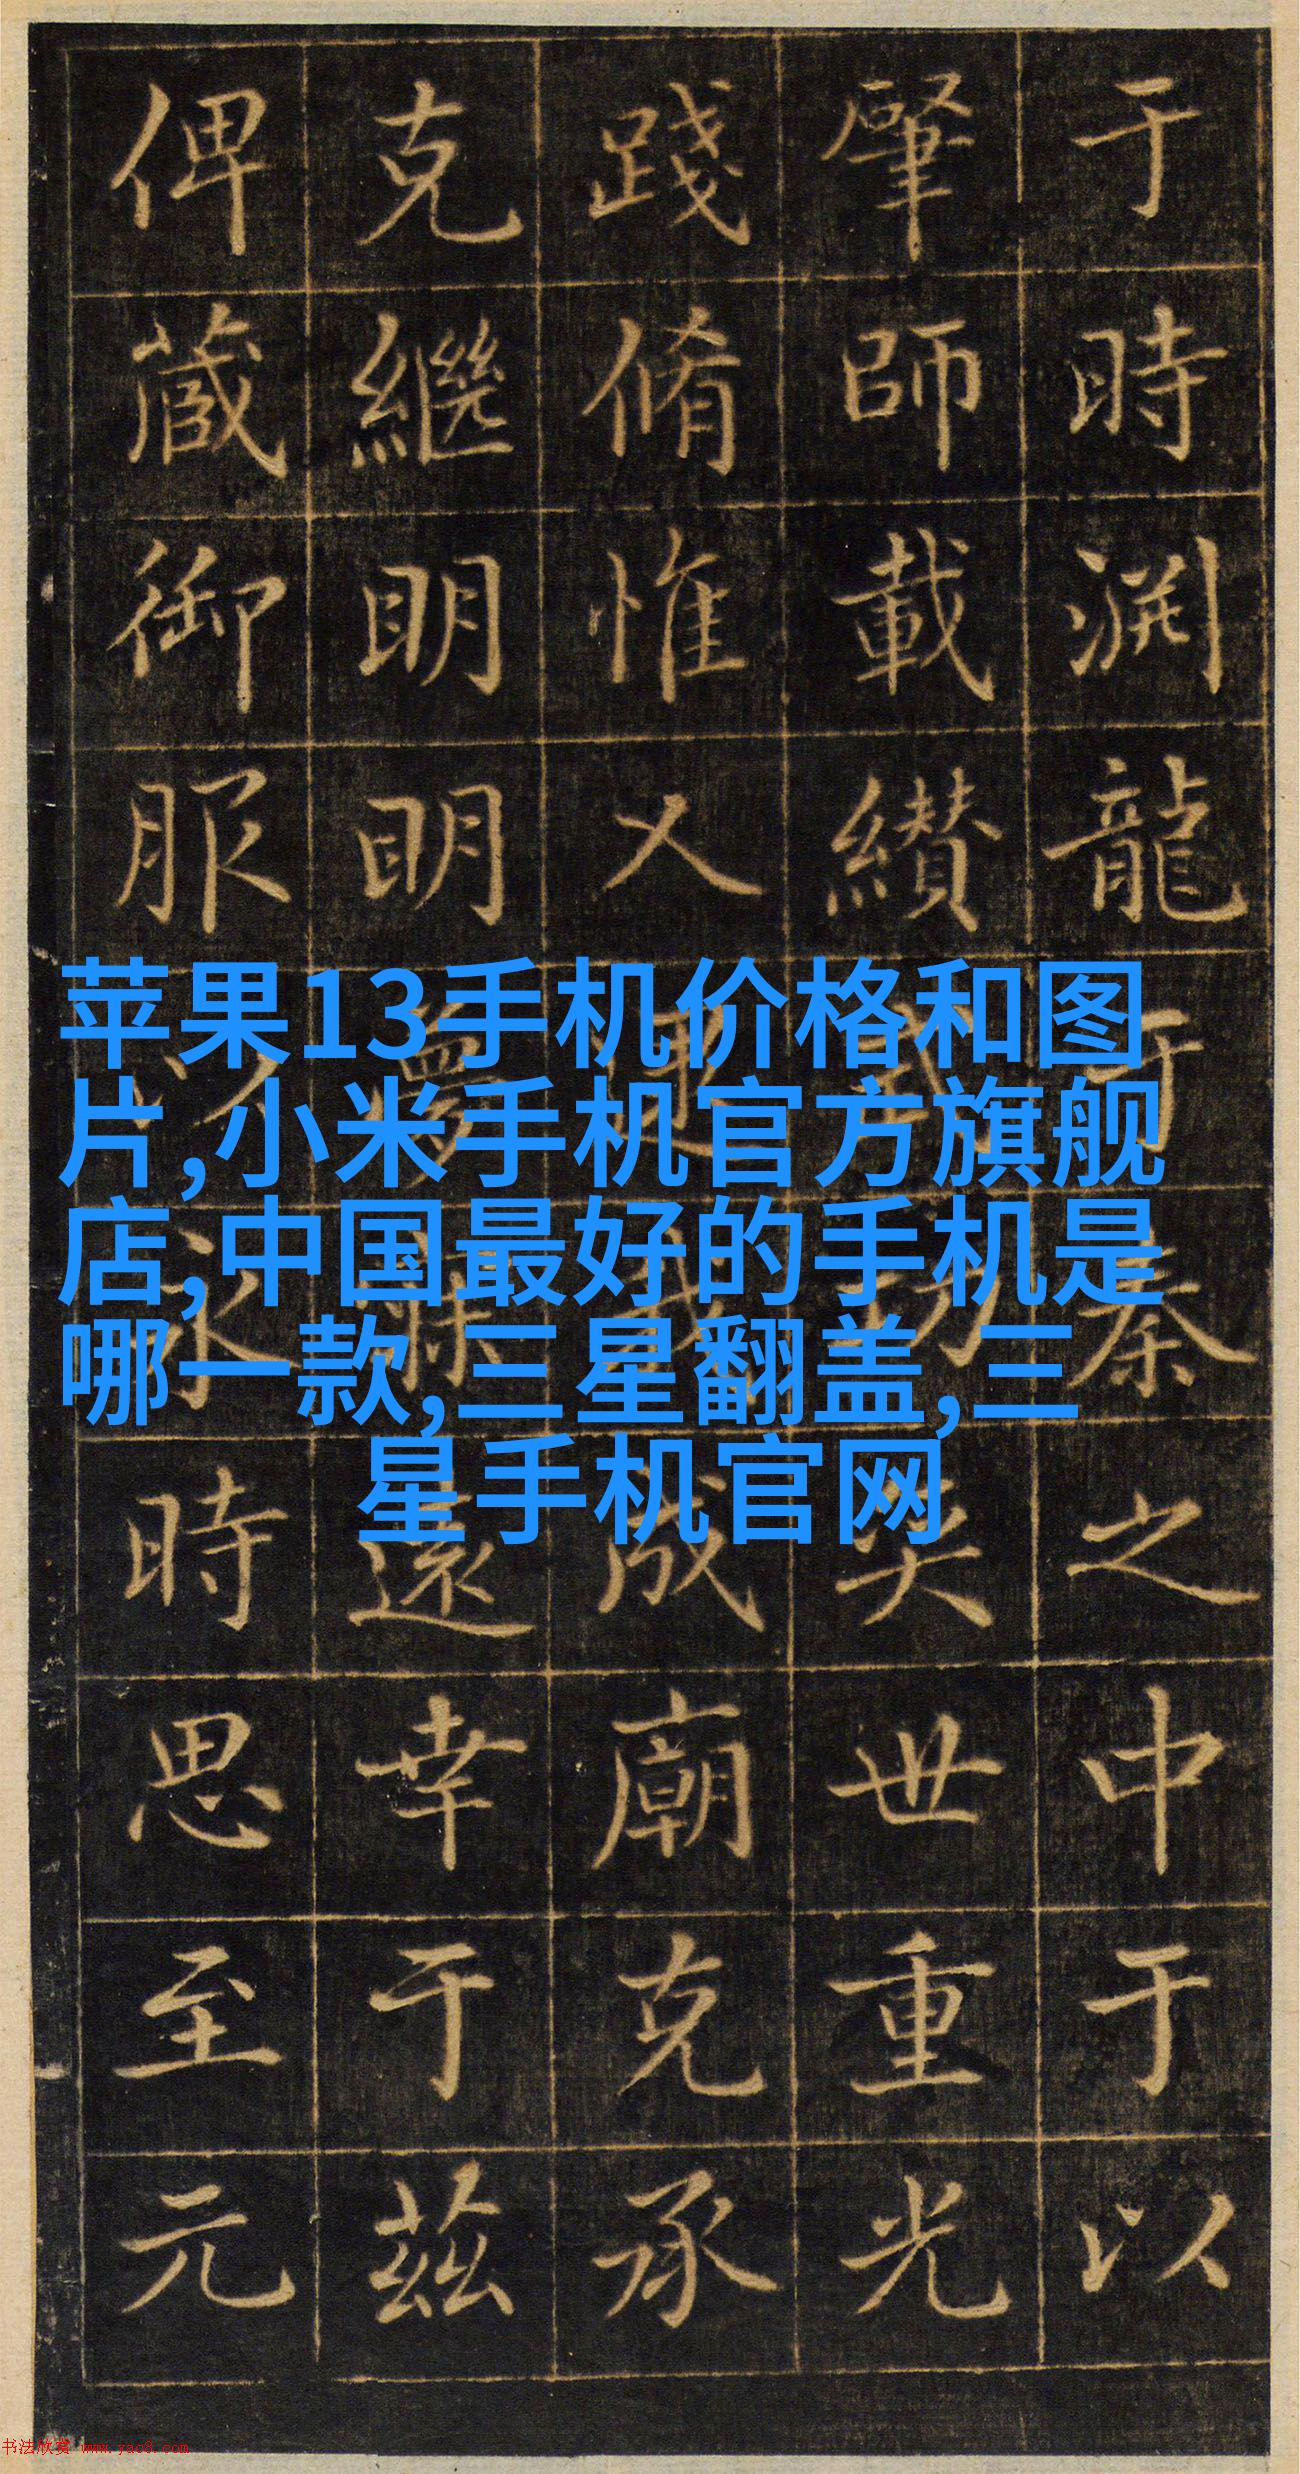 于時渊龍于秦之中于以
肇師載纘功奕世重光
踐脩惟乂逮我成廟克承
克繼明明遠幸于茲
俾蕆御服以永時思至元
苹果13手机价格和图
片,小米手机官方旗舰
店,中国最好的手机是
哪一款,三星翻盖,三
星手机官网
书法欣赏 www.yac8.com